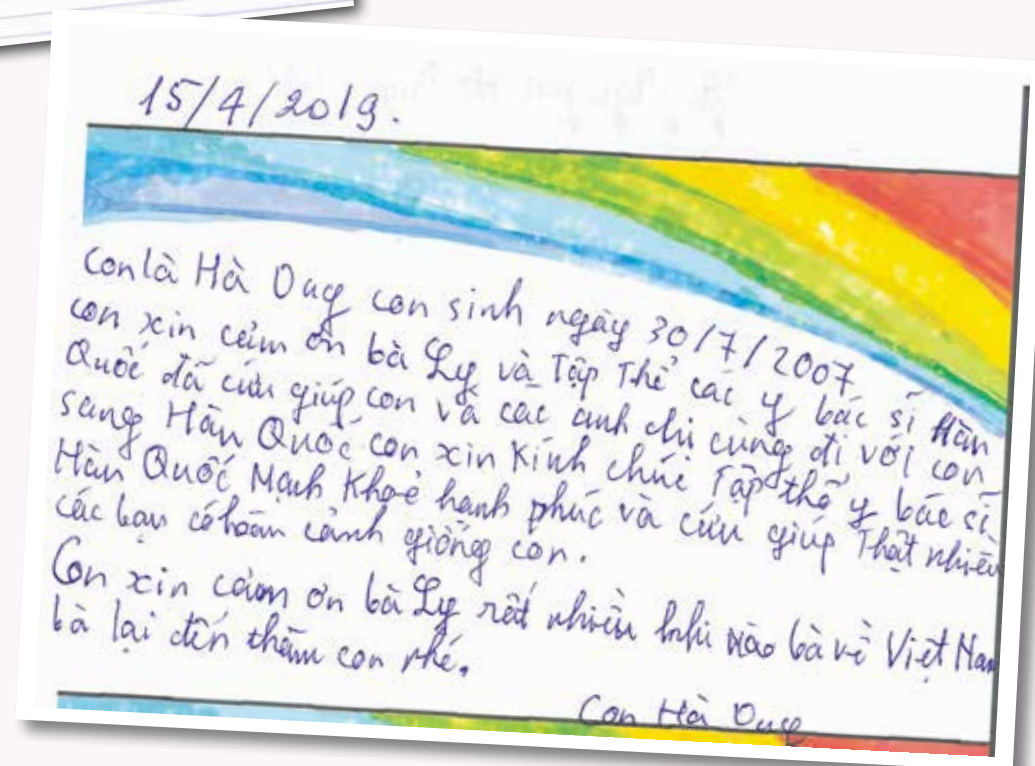 15/4/2019.
Con là Hà Duy con sinh ngày 30/7/2007
con xin cảm ơn bà Ly và Tập Thể các y bác sĩ Hàn
Quốc đã cứu giúp con và các anh chị cùng đi với con
sang Hàn Quốc con xin Kính chúc Tập thể y bác sĩ
Hàn Quốc Mạnh Khoẻ hạnh phúc và cứu giúp Thật nhiều
các bạn có hoàn cảnh giống con.
Con xin cảm ơn bà Ly rất nhiều khi nào bà về Việt Nam
bà lại đến thăm con nhé.
Con Hà Duy